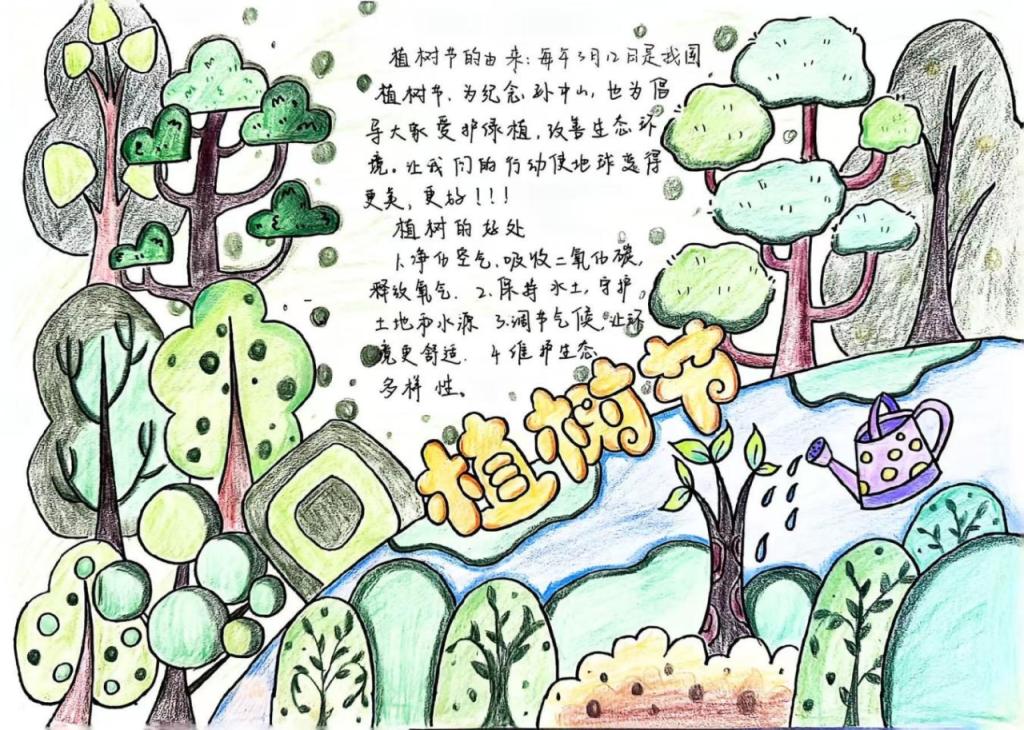 植树节的由来:每年3月12日是我国
植树节、为纪念孙中山,也为倡
导大家爱护绿植,改善生态环
境。让我们的行动使地球变得
更美,更好!!!
植树的好处
1.净化空气、吸收二氧化碳,
释放氧气. 2.保持水土,守护
土地和水源 3.调节气候,让环
境更舒适. 4.维护生态
多样性。
植树节